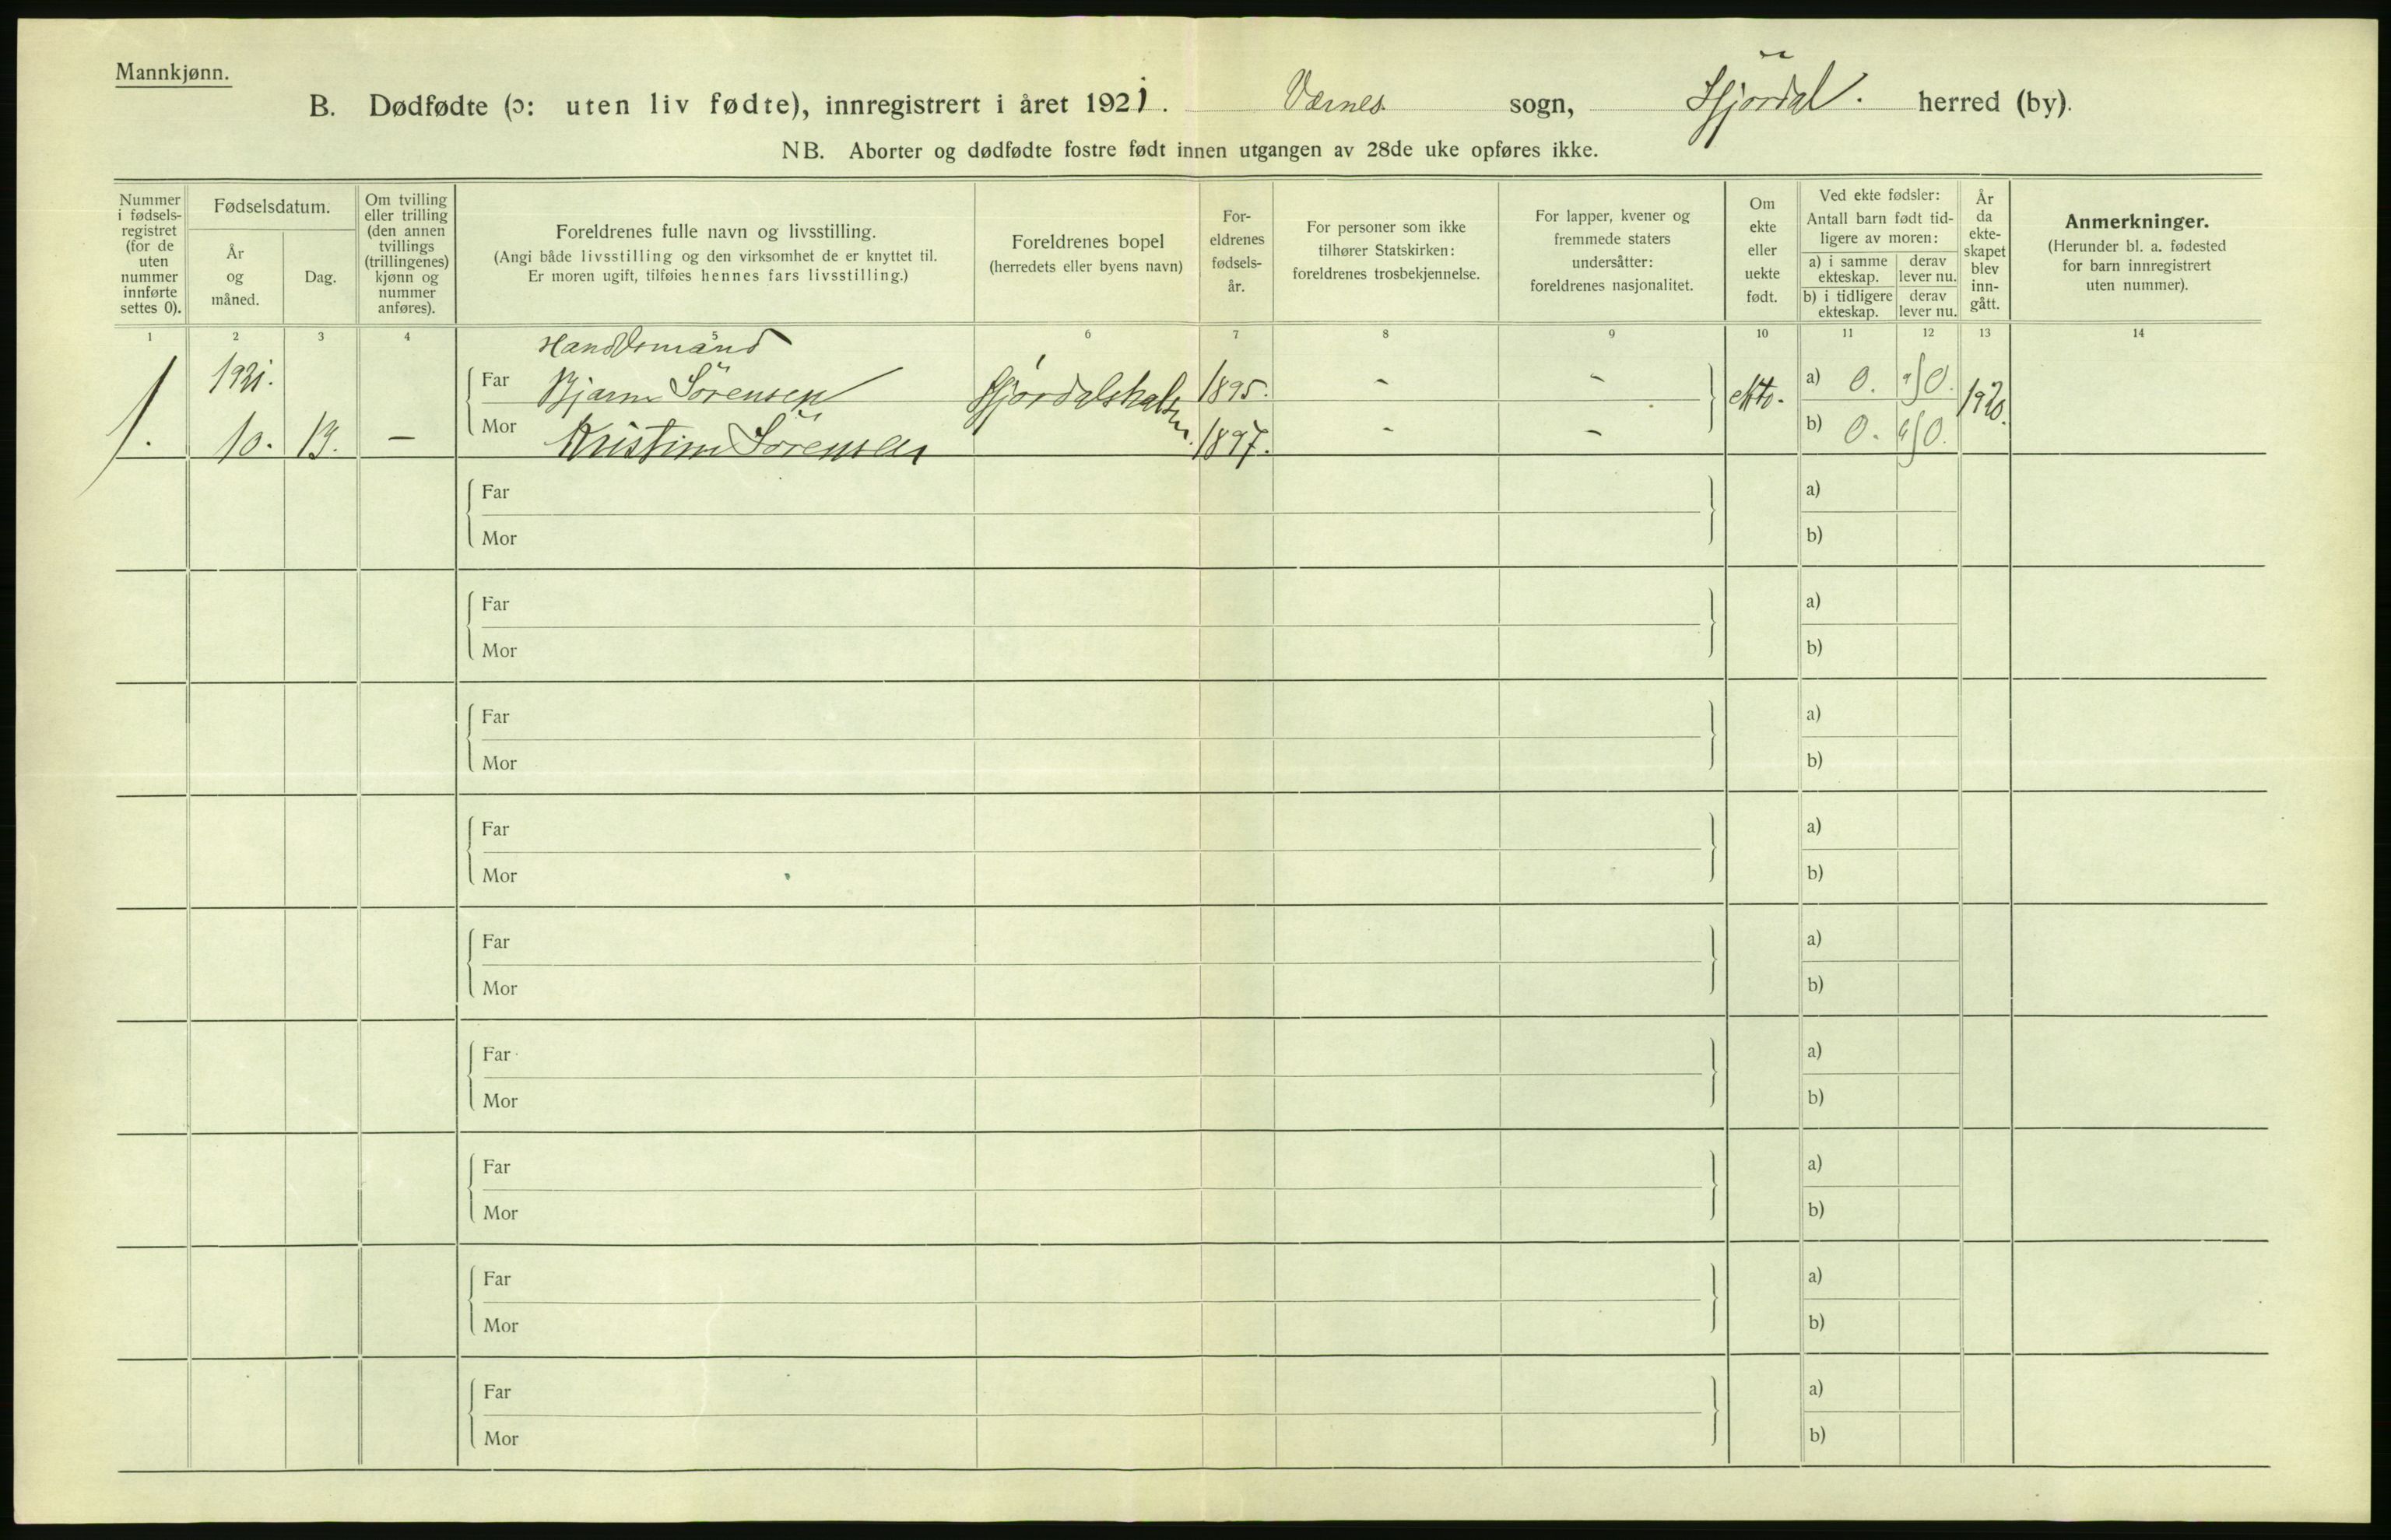 Mannkjønn.
B. Dødfødte (ɔ: uten liv fødte), innregistrert i året 1921. Værnes sogn, Stjördal. herred (by).
NB. Aborter og dødfødte fostre født innen utgangen av 28de uke opføres ikke.
Nummer
i fødsels-
registret
(for de
uten
nummer
innførte
settes 0).
Fødselsdatum.
År
og
måned.
Dag.
Om tvilling
eller trilling
(den annen
tvillings
(trillingenes)
kjønn og
nummer
anføres).
Foreldrenes fulle navn og livsstilling.
(Angi både livsstilling og den virksomhet de er knyttet til.
Er moren ugift, tilføies hennes fars livsstilling.)
Foreldrenes bopel
(herredets eller byens navn)
For-
eldrenes
fødsels-
år.
For personer som ikke
tilhører Statskirken:
foreldrenes trosbekjennelse.
For lapper, kvener og
fremmede staters
undersåtter:
foreldrenes nasjonalitet.
Om
ekte
eller
uekte
født.
Ved ekte fødsler:
Antall barn født tid-
ligere av moren:
a) i samme
ekteskap.
derav
lever nu.
b) i tidligere
ekteskap.
derav
lever nu.
År
da
ekte-
skapet
blev
inn-
gått.
Anmerkninger.
(Herunder bl. a. fødested
for barn innregistrert
uten nummer).
1 2 3 4 5 6 7 8 9 10 11 12 13 14
Handelsmand
1921. Far Bjarne Sörensen Stjördalshalsen. 1895. - - ekte. a) 0. a) 0. 1920.
1. 10. 13. — Mor Kristine Sörensen 1897. - - b) 0. b) 0.
Far a)
Mor b)
Far a)
Mor b)
Far a)
Mor b)
Far a)
Mor b)
Far a)
Mor b)
Far a)
Mor b)
Far a)
Mor b)
Far a)
Mor b)
Far a)
Mor b)